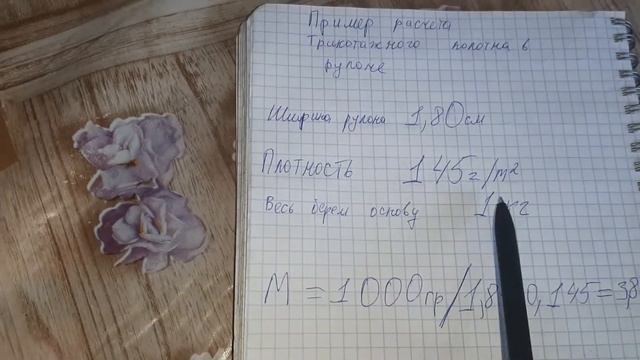 Пример расчета
Трикотажного полотна в
рулоне
Ширина рулона 1,80см
Плотность 145г/m²
Весь берем основу 1 кг
М = 1000гр/1,8 0,145=3,8